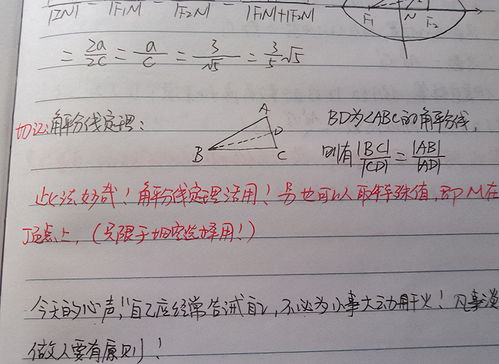 |ZN| |F₁M| |F₂M| |F₁M|+|F₂M|
F₁ N F₂
= 2a/2c = a/c = 3/√5 = 3/5 √5
切记:角平分线定理:
A
B D C
BD为∠ABC的角平分线,
则有 |BC|/|CD| = |AB|/|AD|
此法妙哉!角平分线定理活用!另也可以取特殊值,即M在
顶点上,(只限于填空选择用!)
今天的心声,"自己应经常告诫自己,不必为小事大动肝火!凡事淡
做人要有原则!